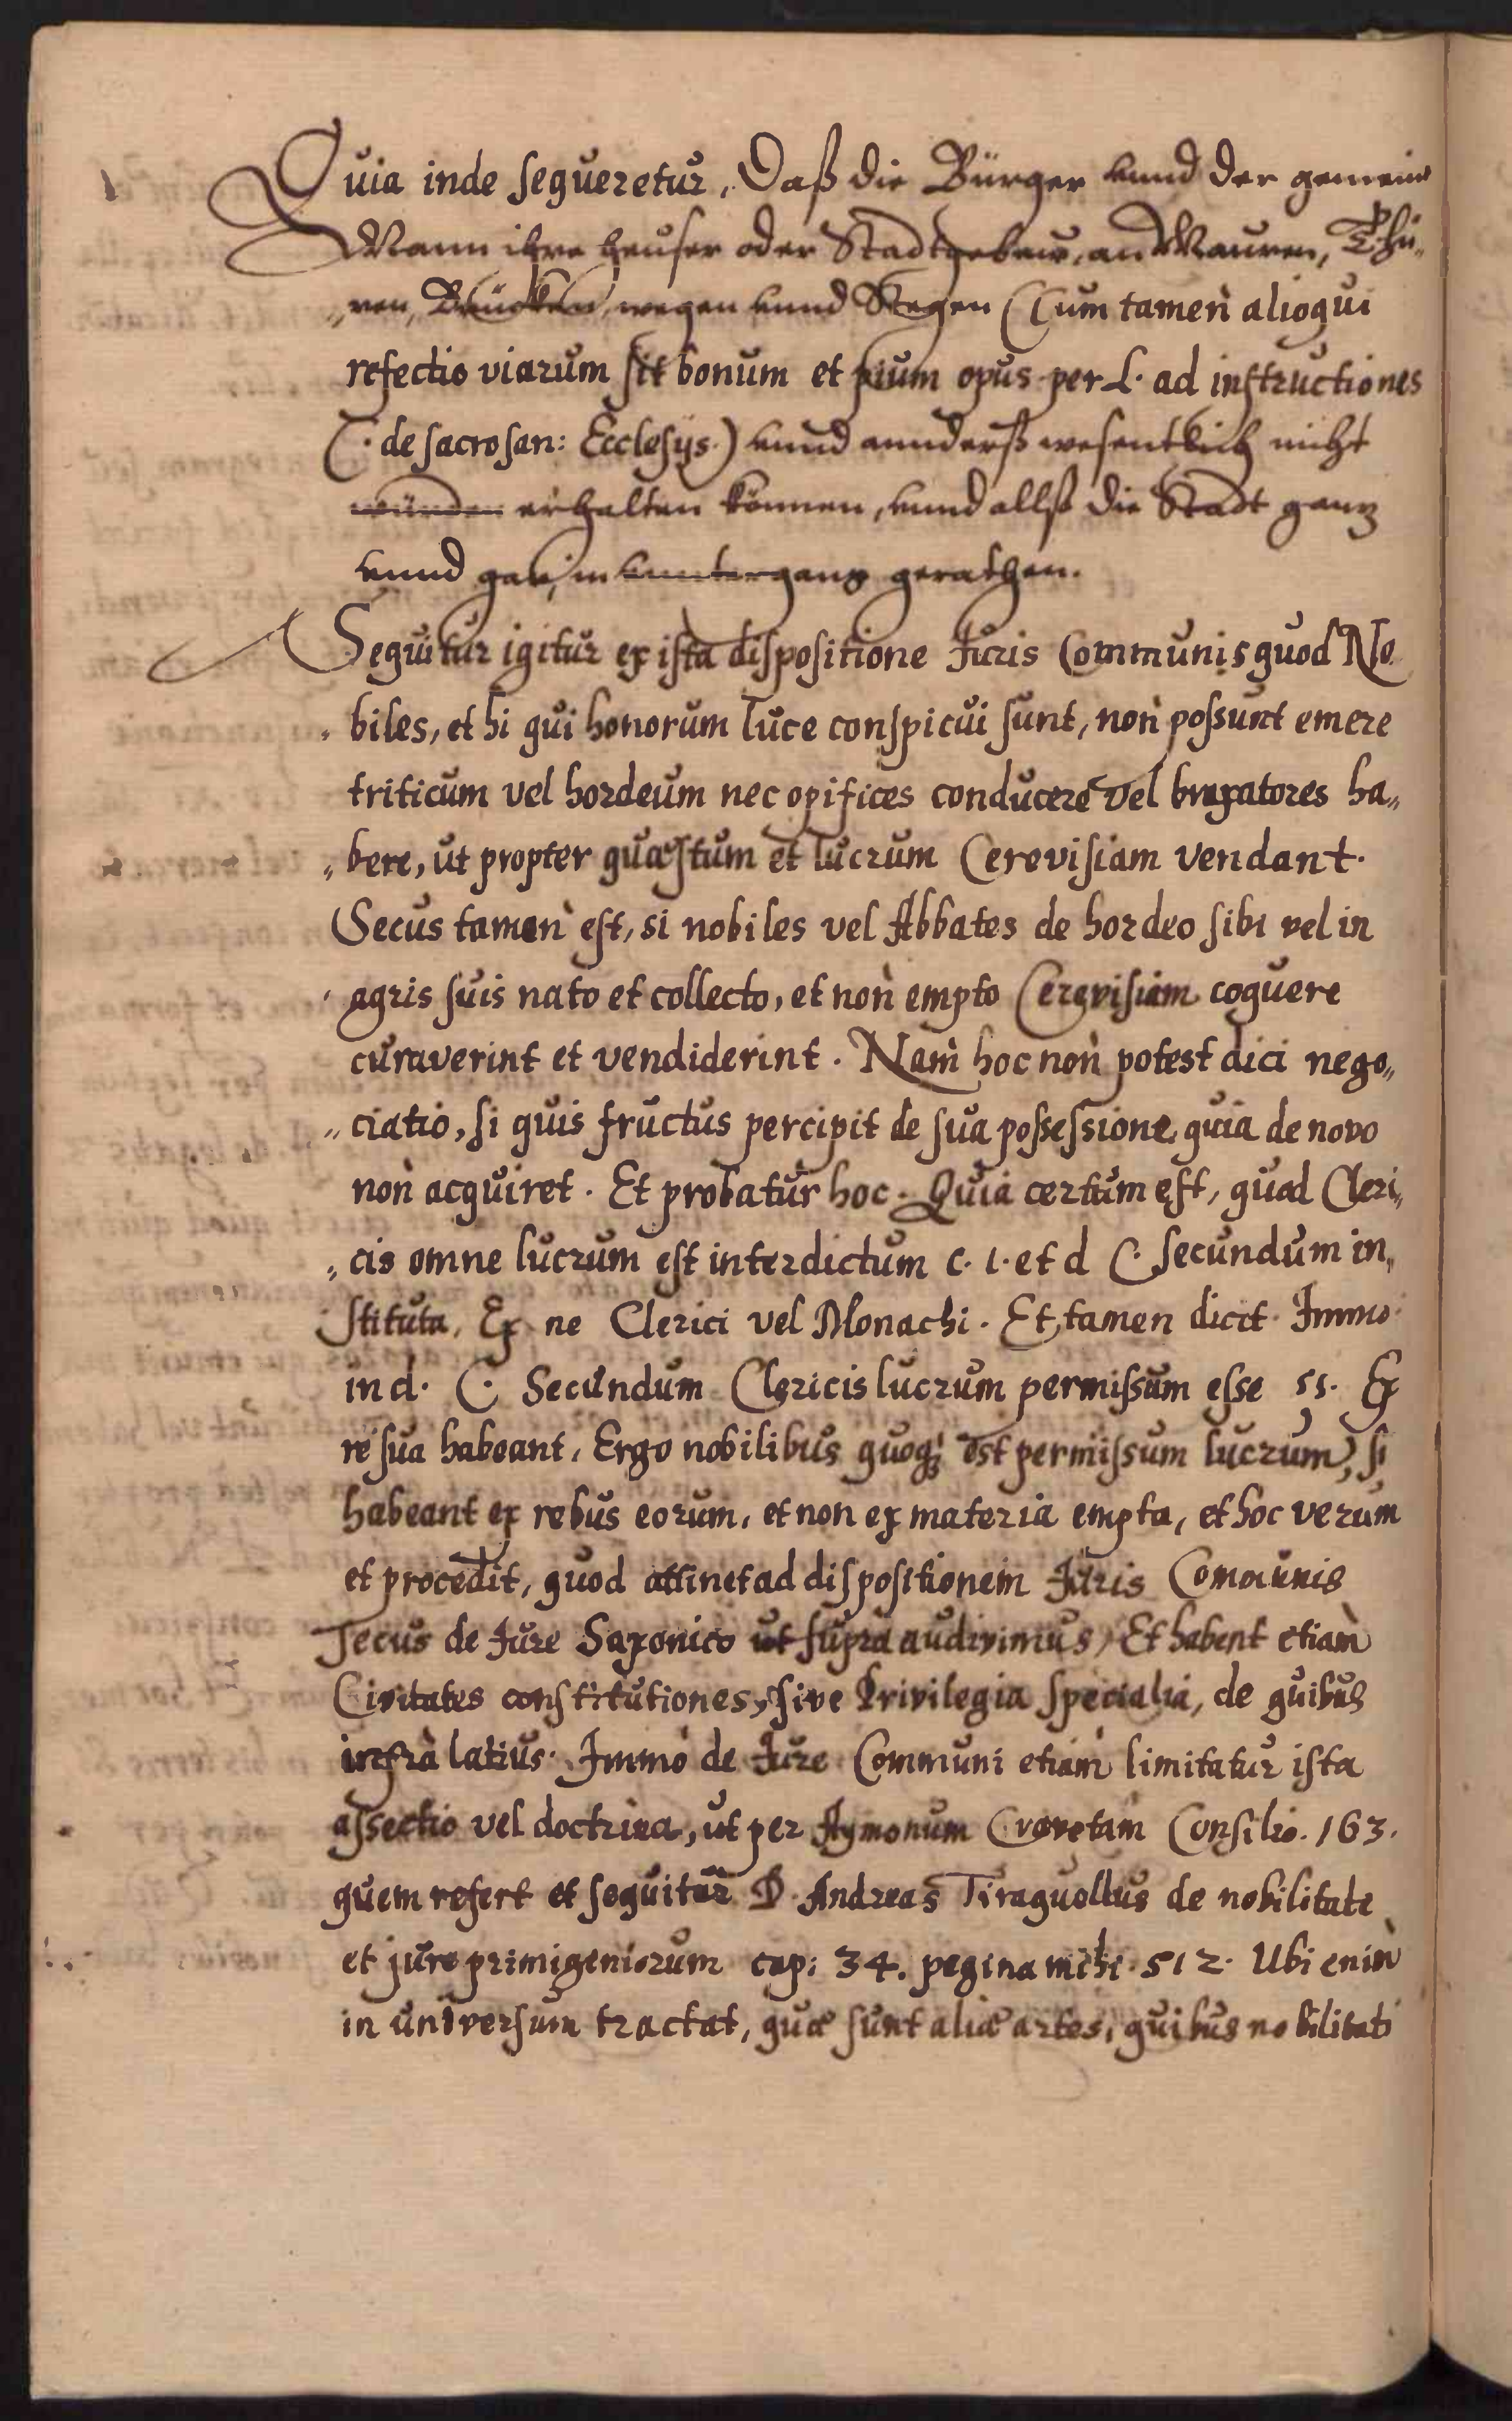 Quia inde sequeretur, Daß die Bürger vnnd der gemeine
Mann ihre heuser oder Stadtgebew, an Mauren, Thü„
„ren, Brücken, wegen vnnd Stegen (Cum tamen alioqui
refectio viarum sit bonum et pium opus per L. ad instructiones
C. de sacrosan: Ecclesijs.) vnnd annderß wesentlich nicht
würden erhalten können, vnnd allß die Stadt ganz
vnnd gar, in vnntergang gerathen.
Sequitur igitur ex ista dispositione Iuris Communis quod No
„biles, et hi qui honorum luce conspicui sunt, non possunt emere
triticum vel hordeum nec opifices conducere vel braxatores ha„
„bere, ut propter quæstum et lucrum Cerevisiam vendant.
Secus tamen est, si nobiles vel Abbates de hordeo sibi vel in
agris suis nato et collecto, et non empto Cerevisiam coquere
curaverint et vendiderint. Nam hoc non potest dici nego„
„ciatio, si quis fructus percipit de sua possessione, quia de novo
non acquiret. Et probatur hoc. Quia certum est, quod Cleri„
„cis omne lucrum est interdictum c. 1. et d C. secundum in„
stituta, Ex ne Clerici vel Monachi. Et tamen dicit Immo
in d. C. Secundum Clericis lucrum permissum esse si. Ex
re sua habeant, Ergo nobilibus quoq; est permissum lucrum, si
habeant ex rebus eorum, et non ex materia empta, et hoc verum
et procedit, quod attinet ad dispositionem Iuris Comounis
Secus de Iure Saxonico ut supra audivimus, Et habent etiam
Civitates constitutiones, sive Privilegia specialia, de quibus
infra latius. Immo de Iure Communi etiam limitatur ista
assectio vel doctrina, ut per Aymonum Cravetam Consilio. 163.
quem refert et sequitur D. Andreas Tiraquellus de nobilitate
et jure primigeniorum cap: 34. pagina mihi 512. Ubi enim
in universum tractat, quæ sunt aliæ artes, quibus nobilitati